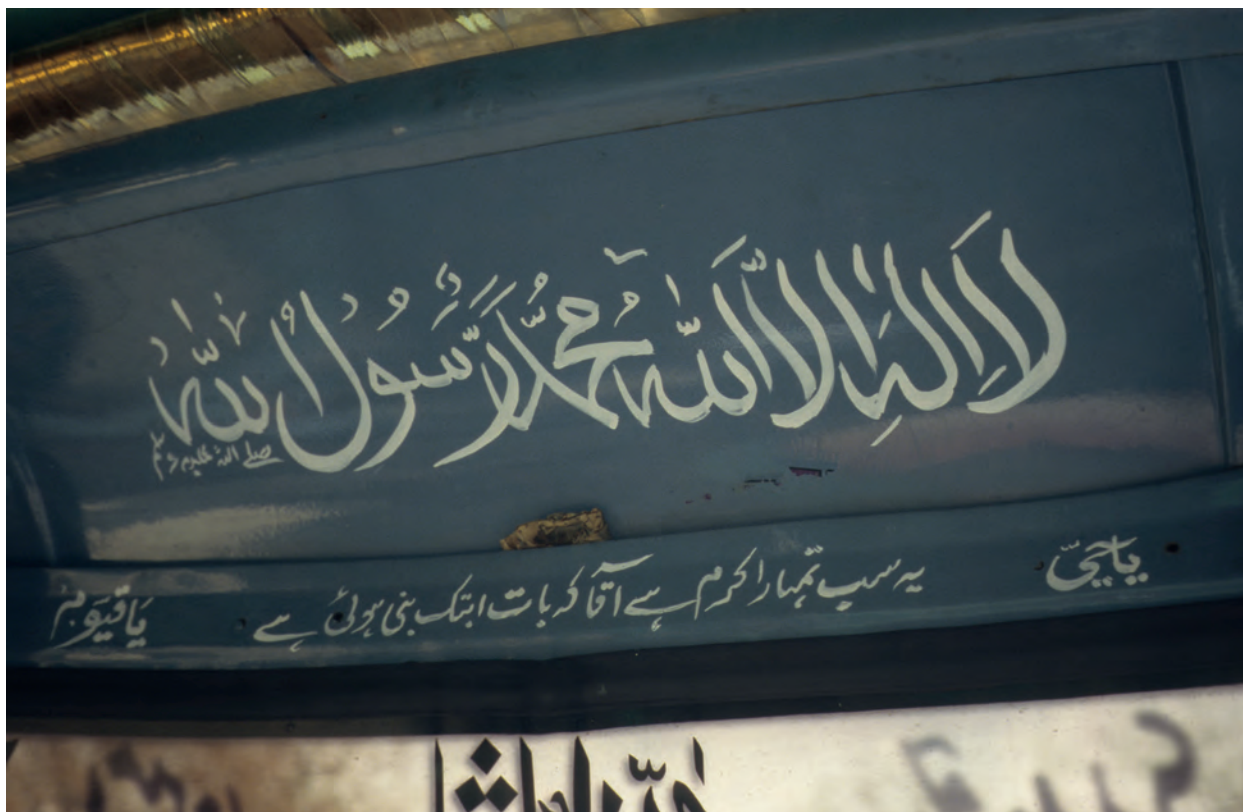 لَا اِلٰهَ اِلَّا اللّٰهُ مُحَمَّدٌ رَّسُوْلُ اللّٰهِ
صلے اللہ علیہ وسلم
یاحیّ یہ سب تمہارا کرم ہے آقا کہ بات ابتک بنی ہوئی ہے یَا قیّوم